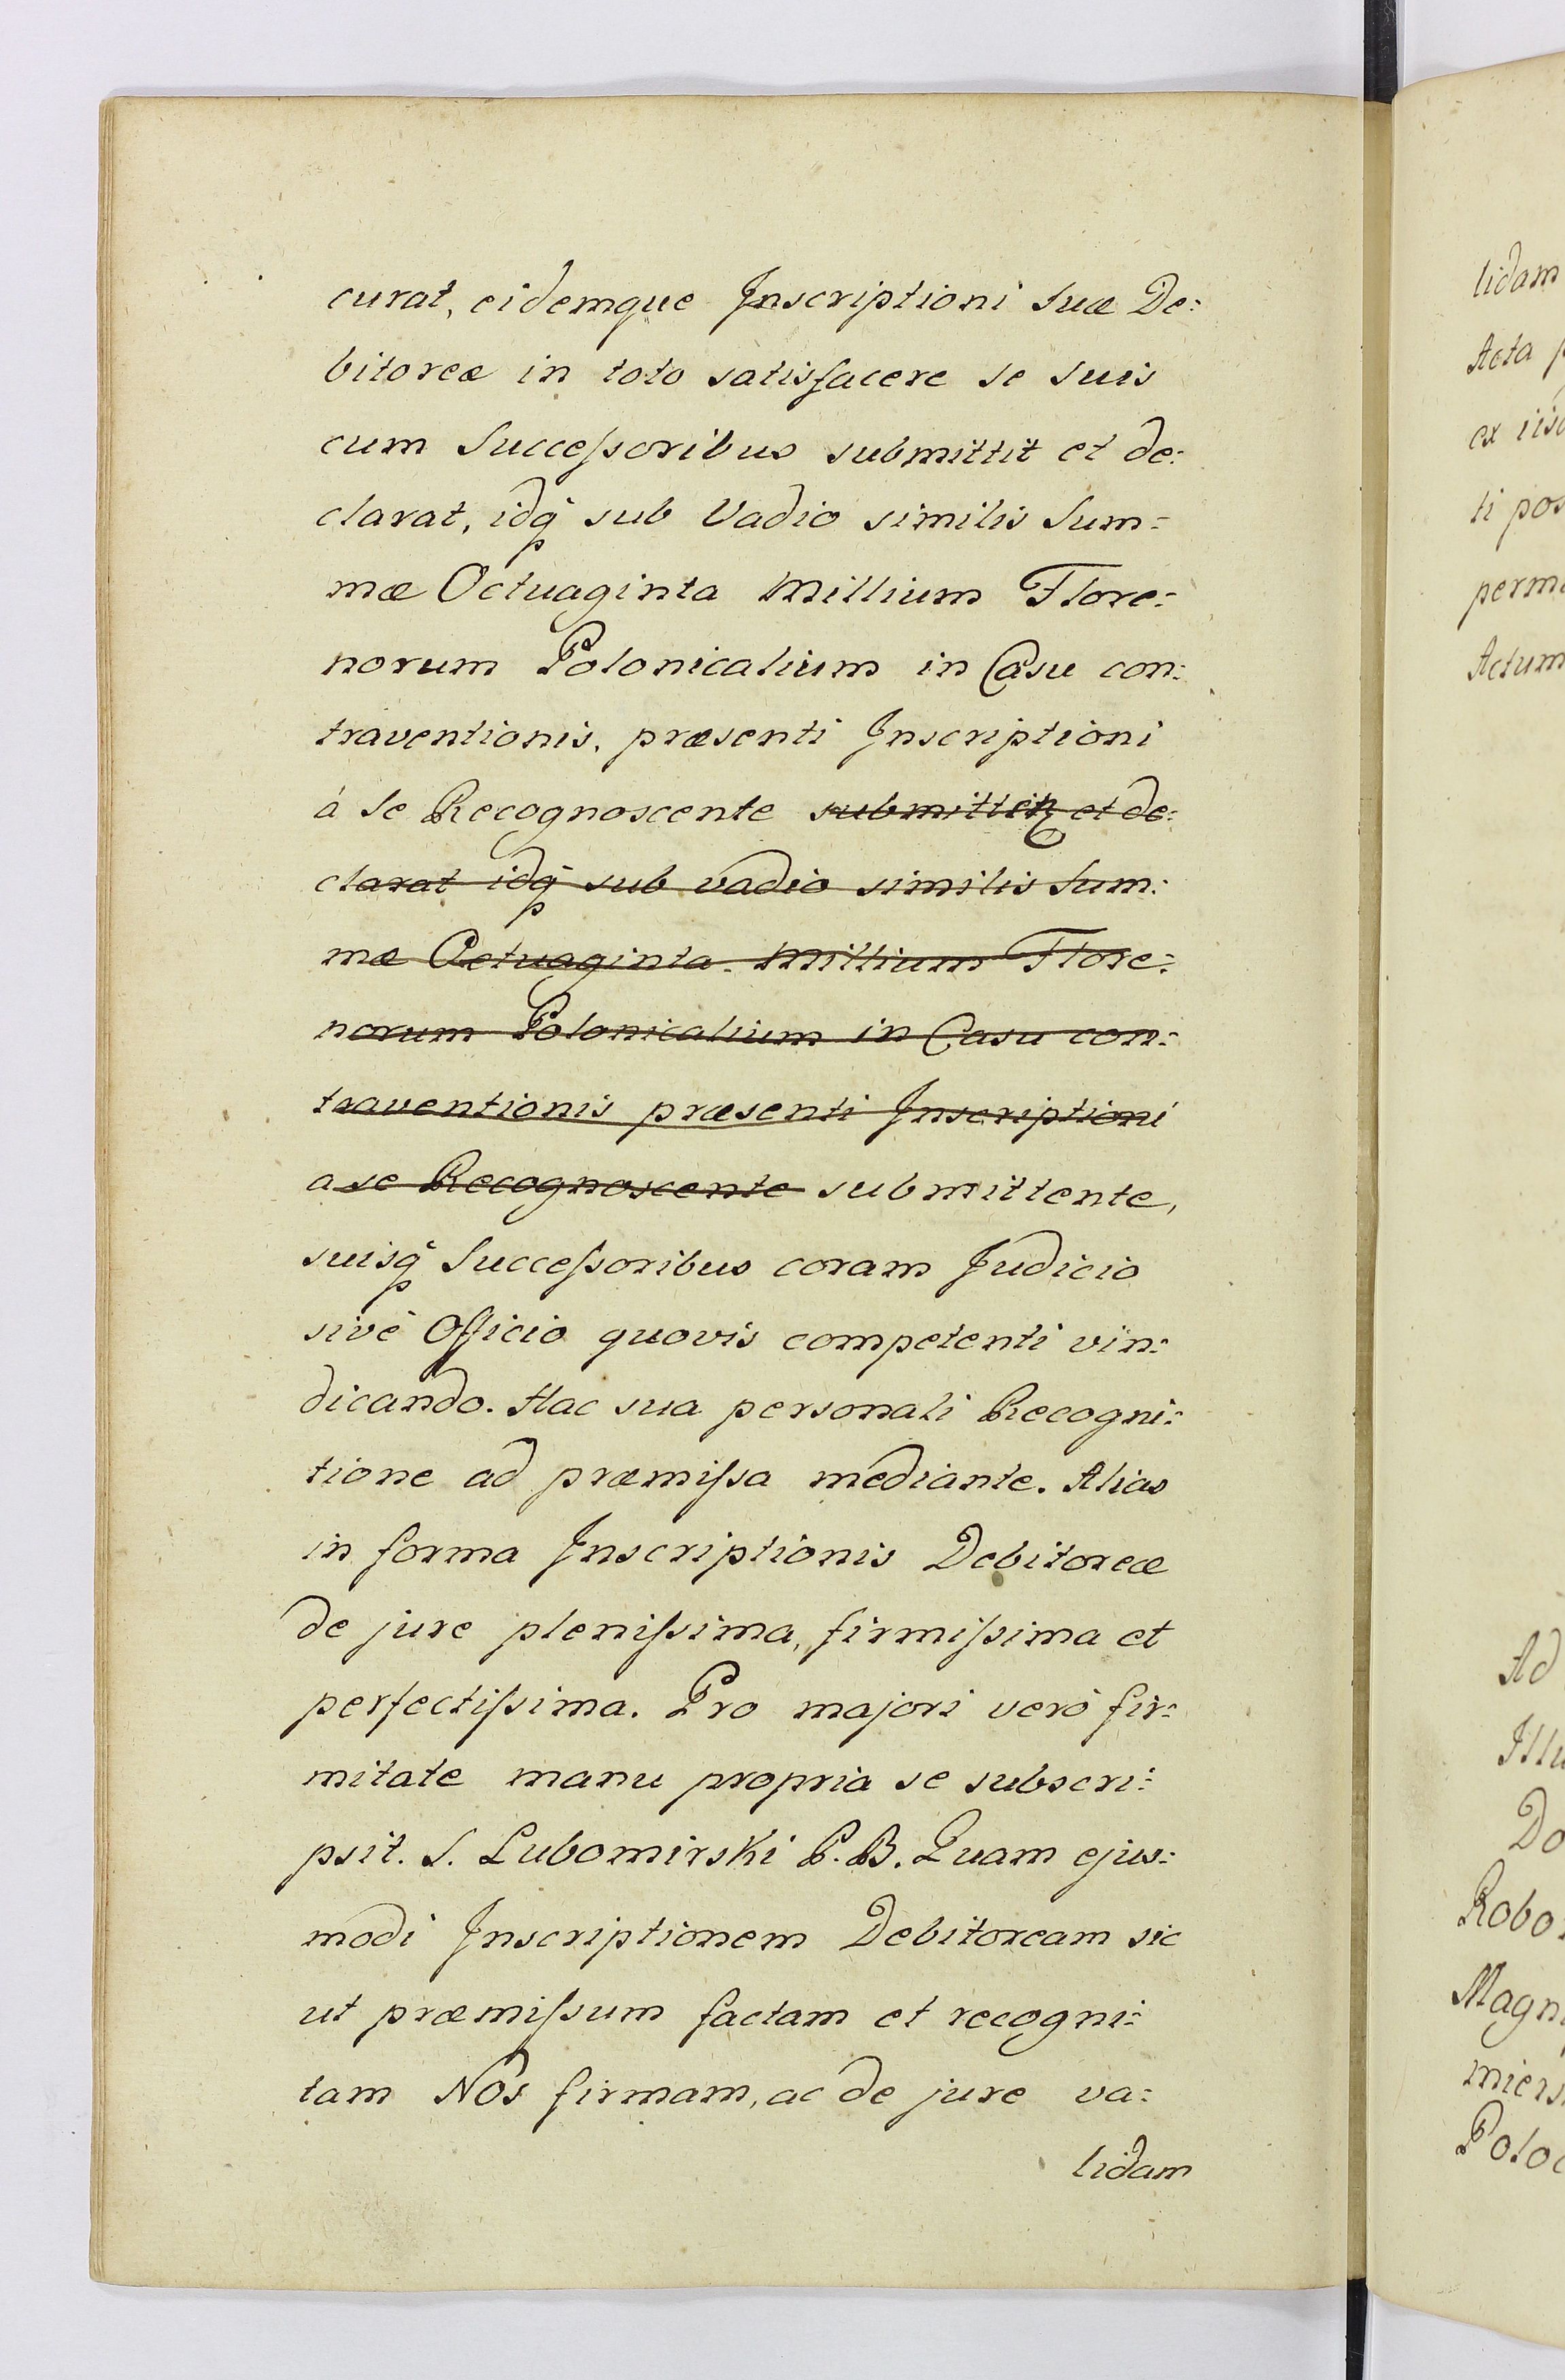 curat, eidemque Inscriptioni suæ De:
bitoreæ in toto satisfacere se suis
cum Succeſsoribus submittit et de:
clarat, idq̃ sub Vadio similis Sum:
mæ Octuaginta Millium Flore:
norum Polonicalium in Casu con:
traventionis, præsenti Inscriptioni
à se Recognoscente submittit et de:
clarat idq̃ sub vadio similis Sum:
mæ Octuaginta Millium Flore:
norum Polonicalium in Casu con:
traventionis præsenti Inscriptioni
a se Recognoscente submittente,
suisq̃ Succeſsoribus coram Judicio
sivè Officio quovis competenti vin:
dicando. Hac sua personali Recogni:
tione ad præmiſsa mediante. Alias
in forma Inscriptionis Debitoreæ
de jure pleniſsima, firmiſsima et
perfectiſsima. Pro majori verò fir:
mitate manu propria se subscri:
psit. S. Lubomirski P. B. Quam ejus:
modi Inscriptionem Debitoream sic
ut præmiſsum factam et recogni:
tam Nos firmam, ac de jure va:
lidam
lidam
Acta
ex
ti
Actum
Ad